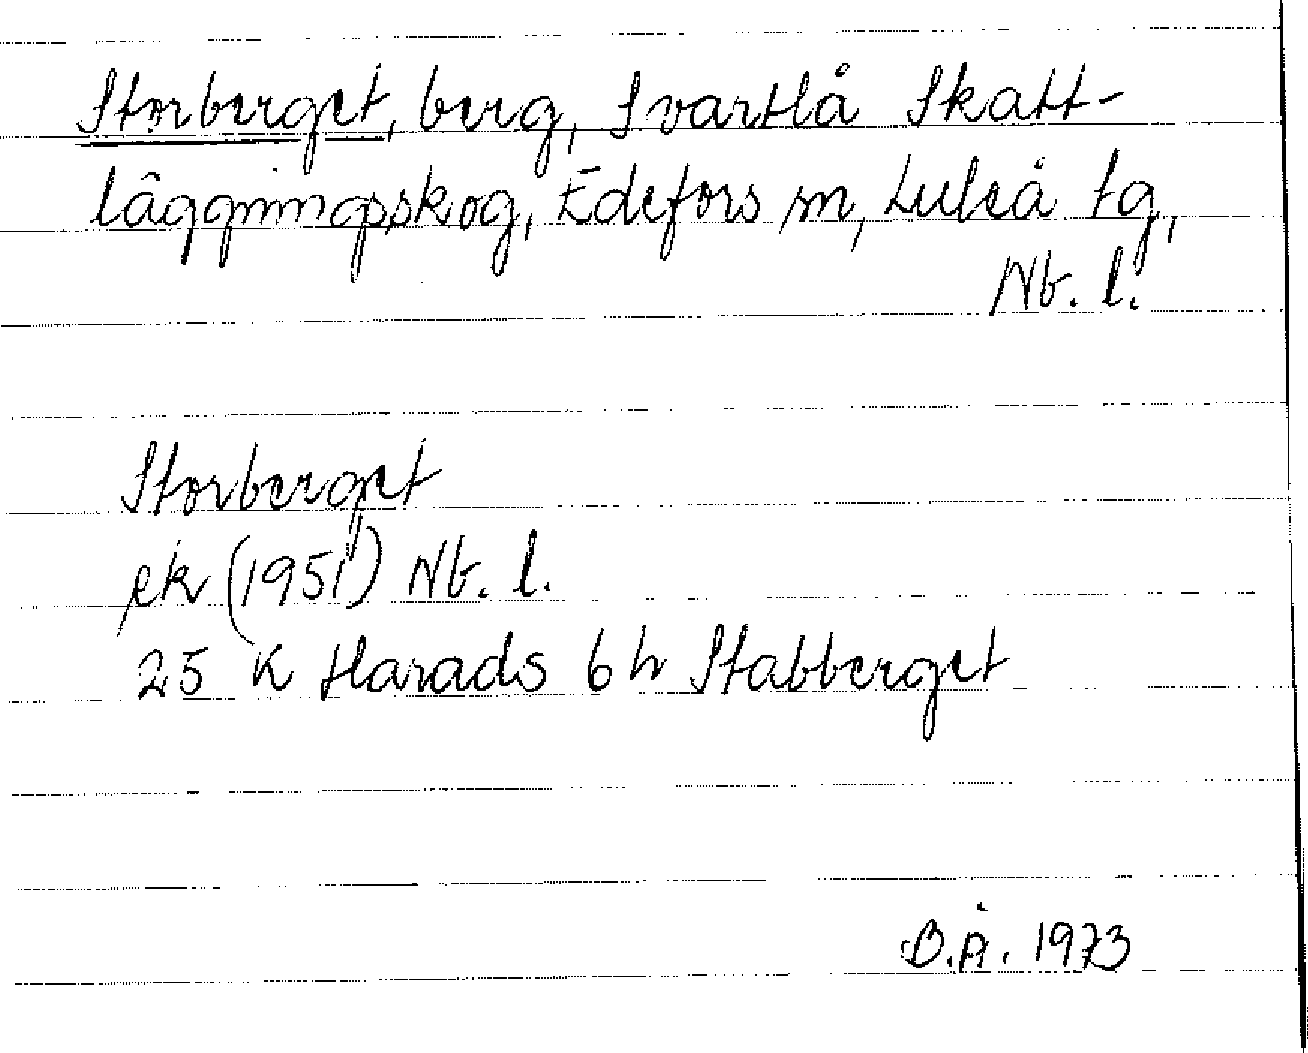 Storberget, berg, Svartlå Skatt-
läggningsskog, Edefors sn, Luleå tg,
Nb. l.
Storberget
ek (1951) Nb. l.
25 K Harads 6 h Stabberget
B.Å. 1973